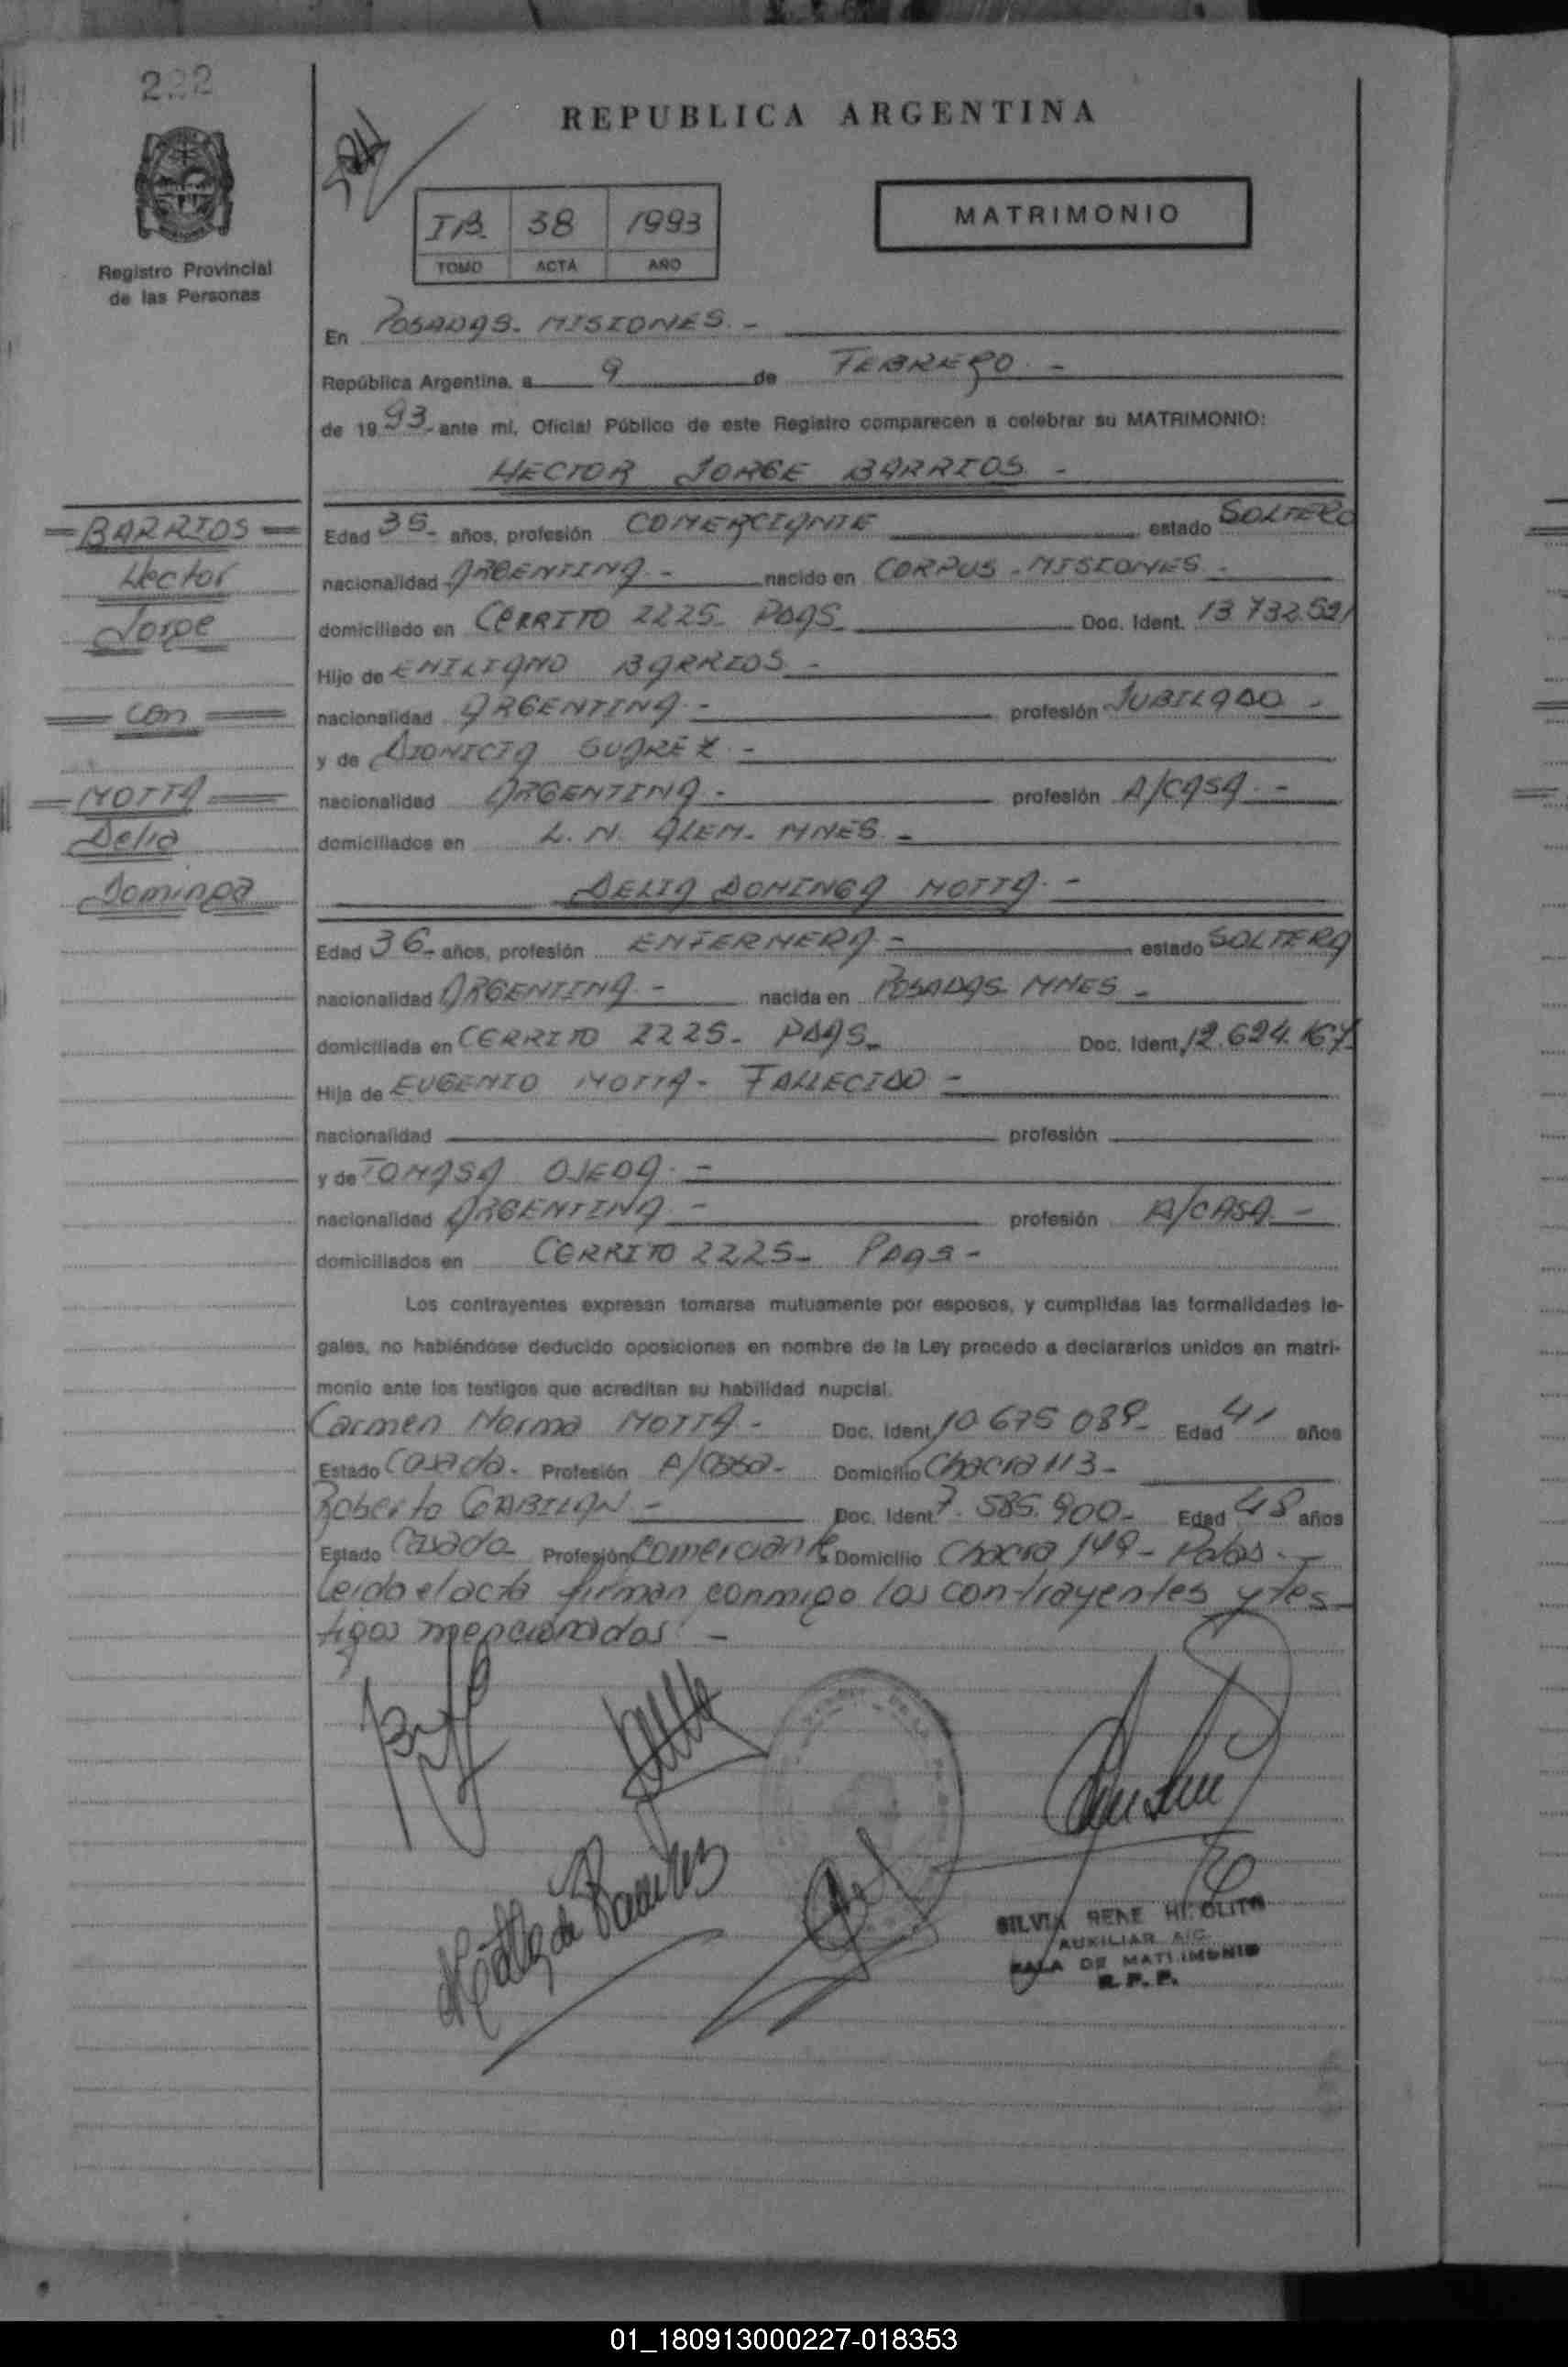 222
REPUBLICA ARGENTINA
MATRIMONIO
IB. 38 1993
TOMO ACTA AÑO
Registro Provincial
de las Personas
En POSADAS. MISIONES. -
República Argentina, a 9 de FEBRERO. -
de 1993- ante mí, Oficial Público de este Registro comparecen a celebrar su MATRIMONIO:
HECTOR JORGE BARRIOS -
= BARRIOS =
Hector
Jorge
= con =
= MOTTA =
Delia
Dominga
Edad 35- años, profesión COMERCIANTE estado SOLTERO
nacionalidad ARGENTINA - nacido en CORPUS - MISIONES -
domiciliado en CERRITO 2225- PDAS. Doc. Ident. 13.732.521
Hijo de EMILIANO BARRIOS -
nacionalidad ARGENTINA - profesión JUBILADO -
y de DIONICIA SUAREZ -
nacionalidad ARGENTINA - profesión A/CASA -
domiciliados en L. N. ALEM - MNES -
DELIA DOMINGA MOTTA -
Edad 36- años, profesión ENFERMERA - estado SOLTERA
nacionalidad ARGENTINA - nacida en POSADAS MNES -
domiciliada en CERRITO 2225- PDAS. Doc. Ident. 12.624.167
Hija de EUGENIO MOTTA - FALLECIDO -
nacionalidad profesión
y de TOMASA OJEDA -
nacionalidad ARGENTINA - profesión A/CASA -
domiciliados en CERRITO 2225- PDAS -
Los contrayentes expresan tomarse mutuamente por esposos, y cumplidas las formalidades le-
gales, no habiéndose deducido oposiciones en nombre de la Ley procedo a declararlos unidos en matri-
monio ante los testigos que acreditan su habilidad nupcial.
Carmen Norma MOTTA - Doc. Ident. 10 675 089- Edad 41 años
Estado Casada - Profesión A/Casa - Domicilio Chacra 113-
Roberto GABILAN - Doc. Ident. 7.585.900- Edad 48 años
Estado Casado Profesión Comerciante Domicilio Chacra 149 - Pdas -
Leida el acta firman conmigo los contrayentes y tes-
tigos mencionados. -
SILVIA RENE HIPOLITO
AUXILIAR A/C
SALA DE MATRIMONIO
R. P. P.
01_180913000227-018353